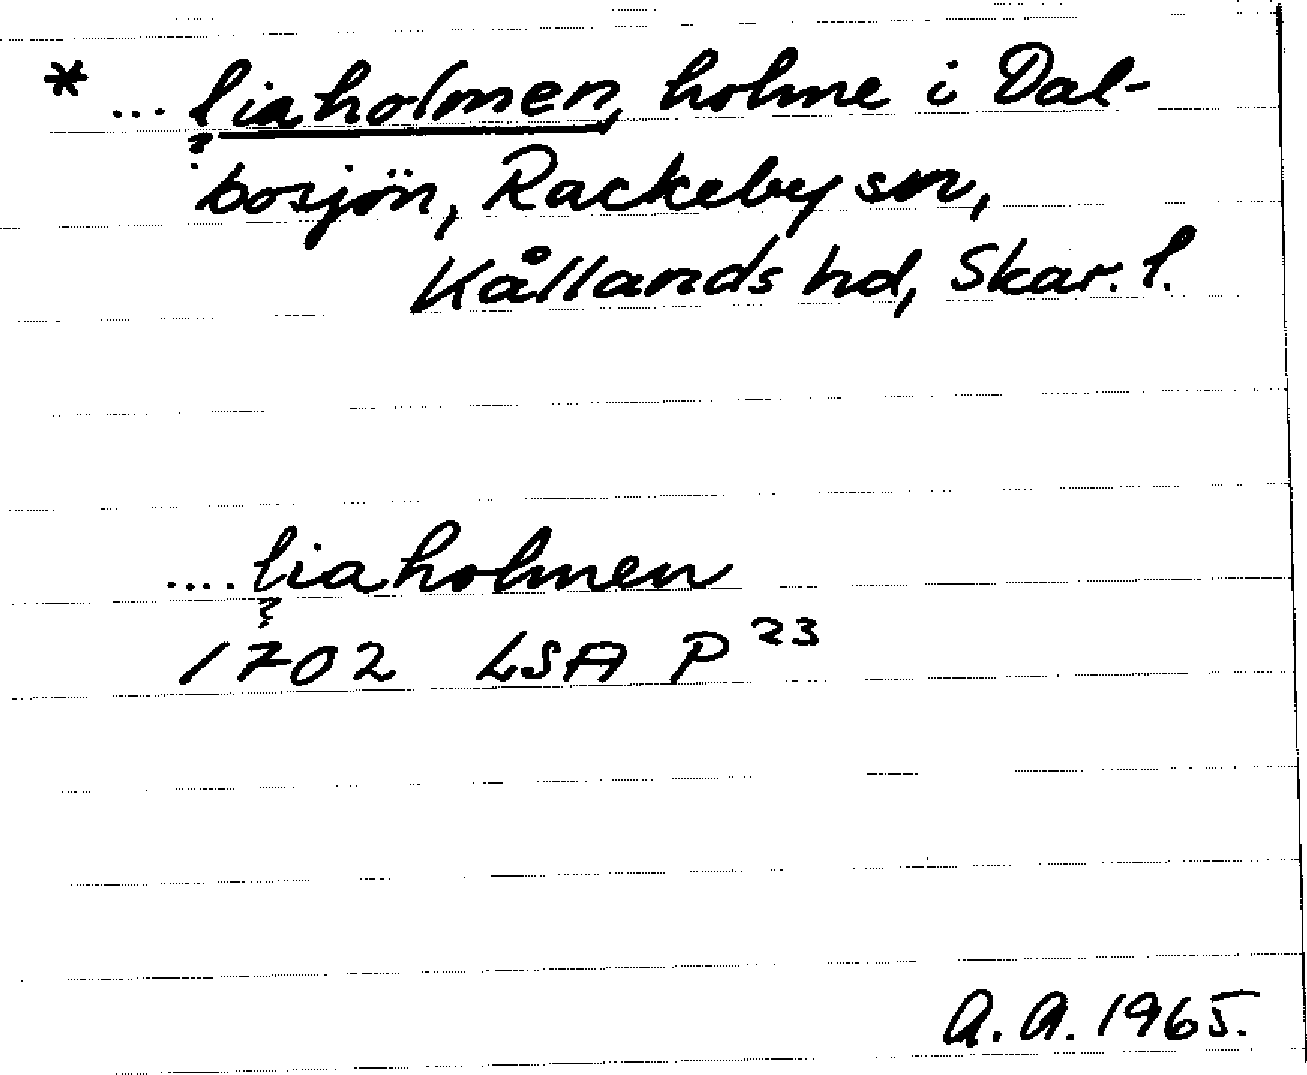 * ... liaholmen, holme i Dal-
?
bosjön, Rackeby sn,
Kållands hd, Skar. l.
.... liaholmen
?
1702 LSA P 23
A. A. 1965.